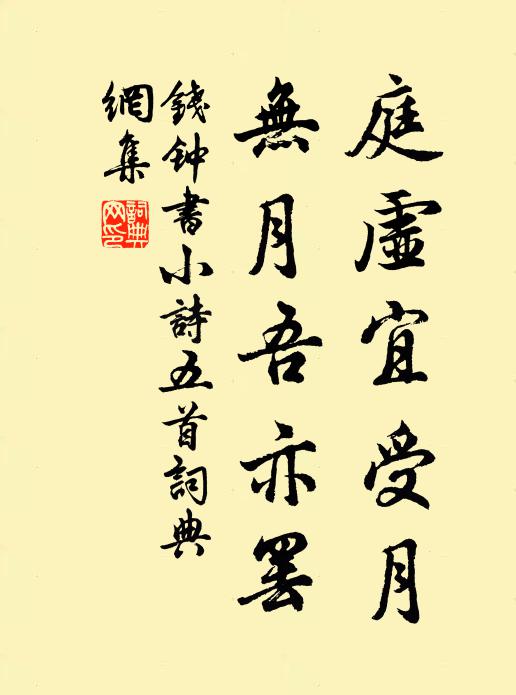 庭虛宜受月
無月吾亦罢
錢钟書小詩五首詞典
網集
詞典
网